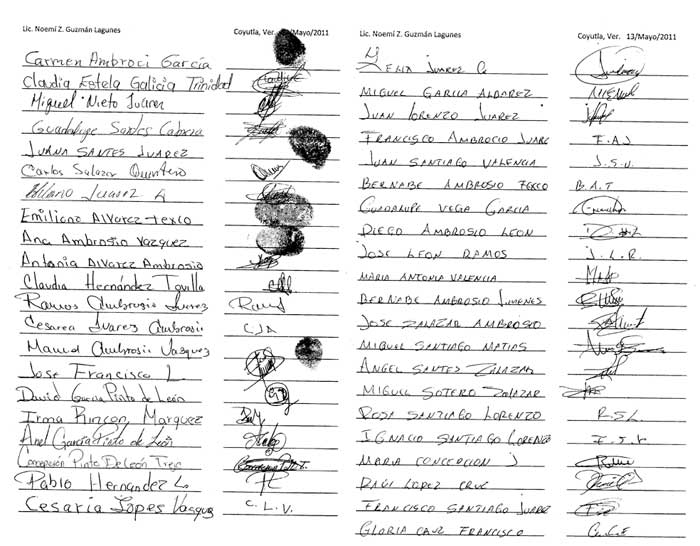 Lic. Noemí Z. Guzmán Lagunes Coyutla, Ver. /Mayo/2011
Carmen Ambroci García
Claudia Estela Galicia Trinidad
Miguel Nieto Juarez
Guadalupe Santes Cabrera
JUANA SANTES JUAREZ
Carlos Salazar Quintero
Hilario Juarez
Emiliano Alvarez Texco
Ana Ambrosio Vazquez
Antonia Alvarez Ambrosio
Claudia Hernández Tovilla
Ramos Ambrosio Juarez
Cesarea Juares Ambrosio C.J.A
Manuel Ambrosio Vasques
Jose Francisco L.
David Garcia Pinto de León
Irma Rincon Marquez
Anel Garcia Pinto de León
Concepción Pinto De León Trejo
Pablo Hernandez L.
Cesaria Lopes Vasques C.L.V.
Lic. Noemí Z. Guzmán Lagunes Coyutla, Ver. 13/Mayo/2011
FELIX JUAREZ G.
MIGUEL GARCIA ALBAREZ MIGUEL
JUAN LORENZO JUAREZ
FRANCISCO AMBROCIO JUARE F.A.J
JUAN SANTIAGO VALENCIA J.S.V.
BERNABE AMBROSIO TEXCO B.A.T
GUADALUPE VEGA GARCIA
DIEGO AMBROSIO LEON
JOSE LEON RAMOS J.L.R.
MARIA ANTONIA VALENCIA
BERNABE AMBROSIO JIMENES
JOSE ZALAZAR AMBROSIO
MIGUEL SANTIAGO MATIAS
ANGEL SANTES ZALAZAR
MIGUEL SOTERO ZALAZAR
ROSA SANTIAGO LORENZO R.S.L
IGNACIO SANTIAGO LORENZO
MARIA CONCEPCION J
RAÚL LOPEZ CRUZ
FRANCISCO SANTIAGO JUAREZ
GLORIA CRUZ FRANCISCO